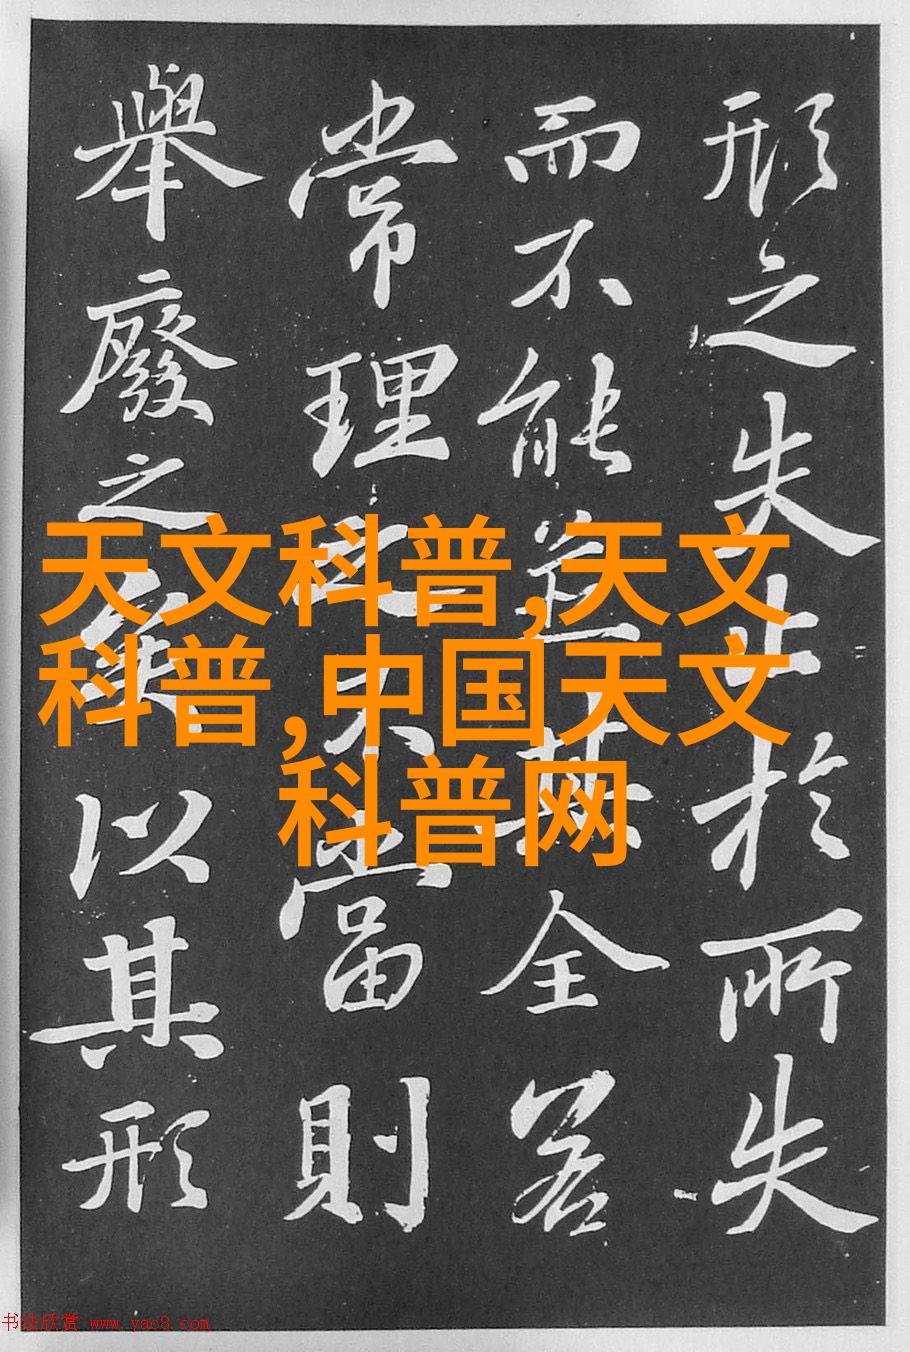 形之失止於所失
而不能其全若
常理之不當則
舉廢之矣以其形
天文科普,天文
科普,中国天文
科普网
书法欣赏 www.yac8.com